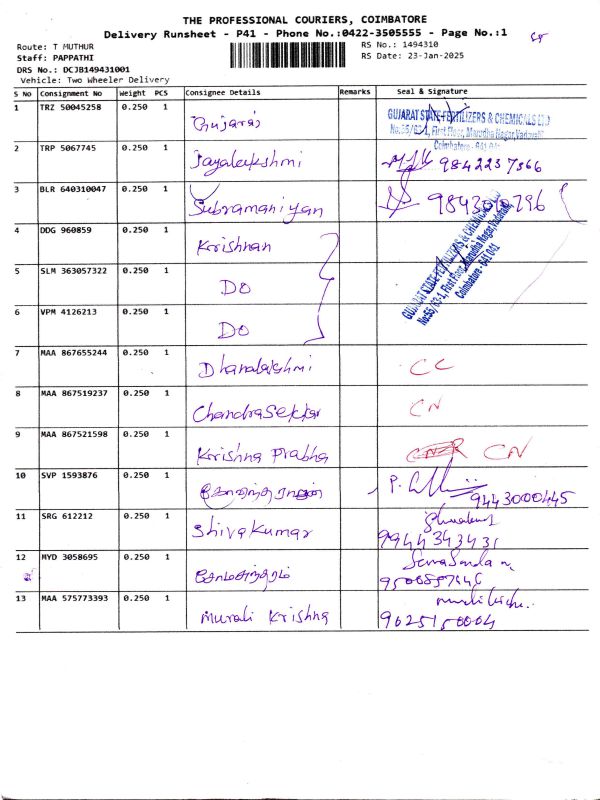 THE PROFESSIONAL COURIERS, COIMBATORE
Delivery Runsheet - P41 - Phone No.:0422-3505555 - Page No.:1
Route: T MUTHUR
RS No.: 1494310
Staff: PAPPATHI
RS Date: 23-Jan-2025
DRS No.: DCJB149431001
Vehicle: Two Wheeler Delivery
S No Consignment No Weight PCS Consignee Details Remarks Seal & Signature
1 TRZ 50045258 0.250 1 Gujarat GUJARAT STATE FERTILIZERS & CHEMICALS LTD
No.55/63-1, First Floor, Marudha Nagar, Vadavalli
Coimbatore - 641 041
2 TRP 5067745 0.250 1 Jayalekshmi 9842237366
3 BLR 640310047 0.250 1 Subramaniyan 9843010296
4 DDG 960859 0.250 1 Krishnan
GUJARAT STATE FERTILIZERS & CHEMICALS
No.55/63-1, First Floor, Marudha Nagar, Vadavalli
Coimbatore - 641 041
5 SLM 363057322 0.250 1 DO
6 VPM 4126213 0.250 1 DO
7 MAA 867655244 0.250 1 Dhanalakshmi CC
8 MAA 867519237 0.250 1 Chandrasekar CN
9 MAA 867521598 0.250 1 Krishna Prabha CN
10 SVP 1593876 0.250 1 9443000445
11 SRG 612212 0.250 1 Shivakumar
9944343431
12 MYD 3058695 0.250 1 சோமசுந்தரம்
13 MAA 575773393 0.250 1 Murali Krishna
9025150004